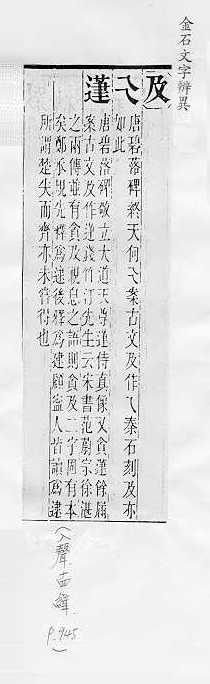 金石文字辨異
及
乁 唐碧落碑終天何乁案古文及作乁秦石刻及亦
如此
唐碧落碑敬立大道天尊 侍真像又貪 餘願
案古文及作 錢竹汀先生云宋書范蔚宗徐湛
之兩傳並有貪及視息之語則貪及二字固有本
矣鄭承規先釋為逮後釋為建顧寧人皆讀為逮
所謂楚失而齊亦未 得也
(入聲 十四緝 P.945)